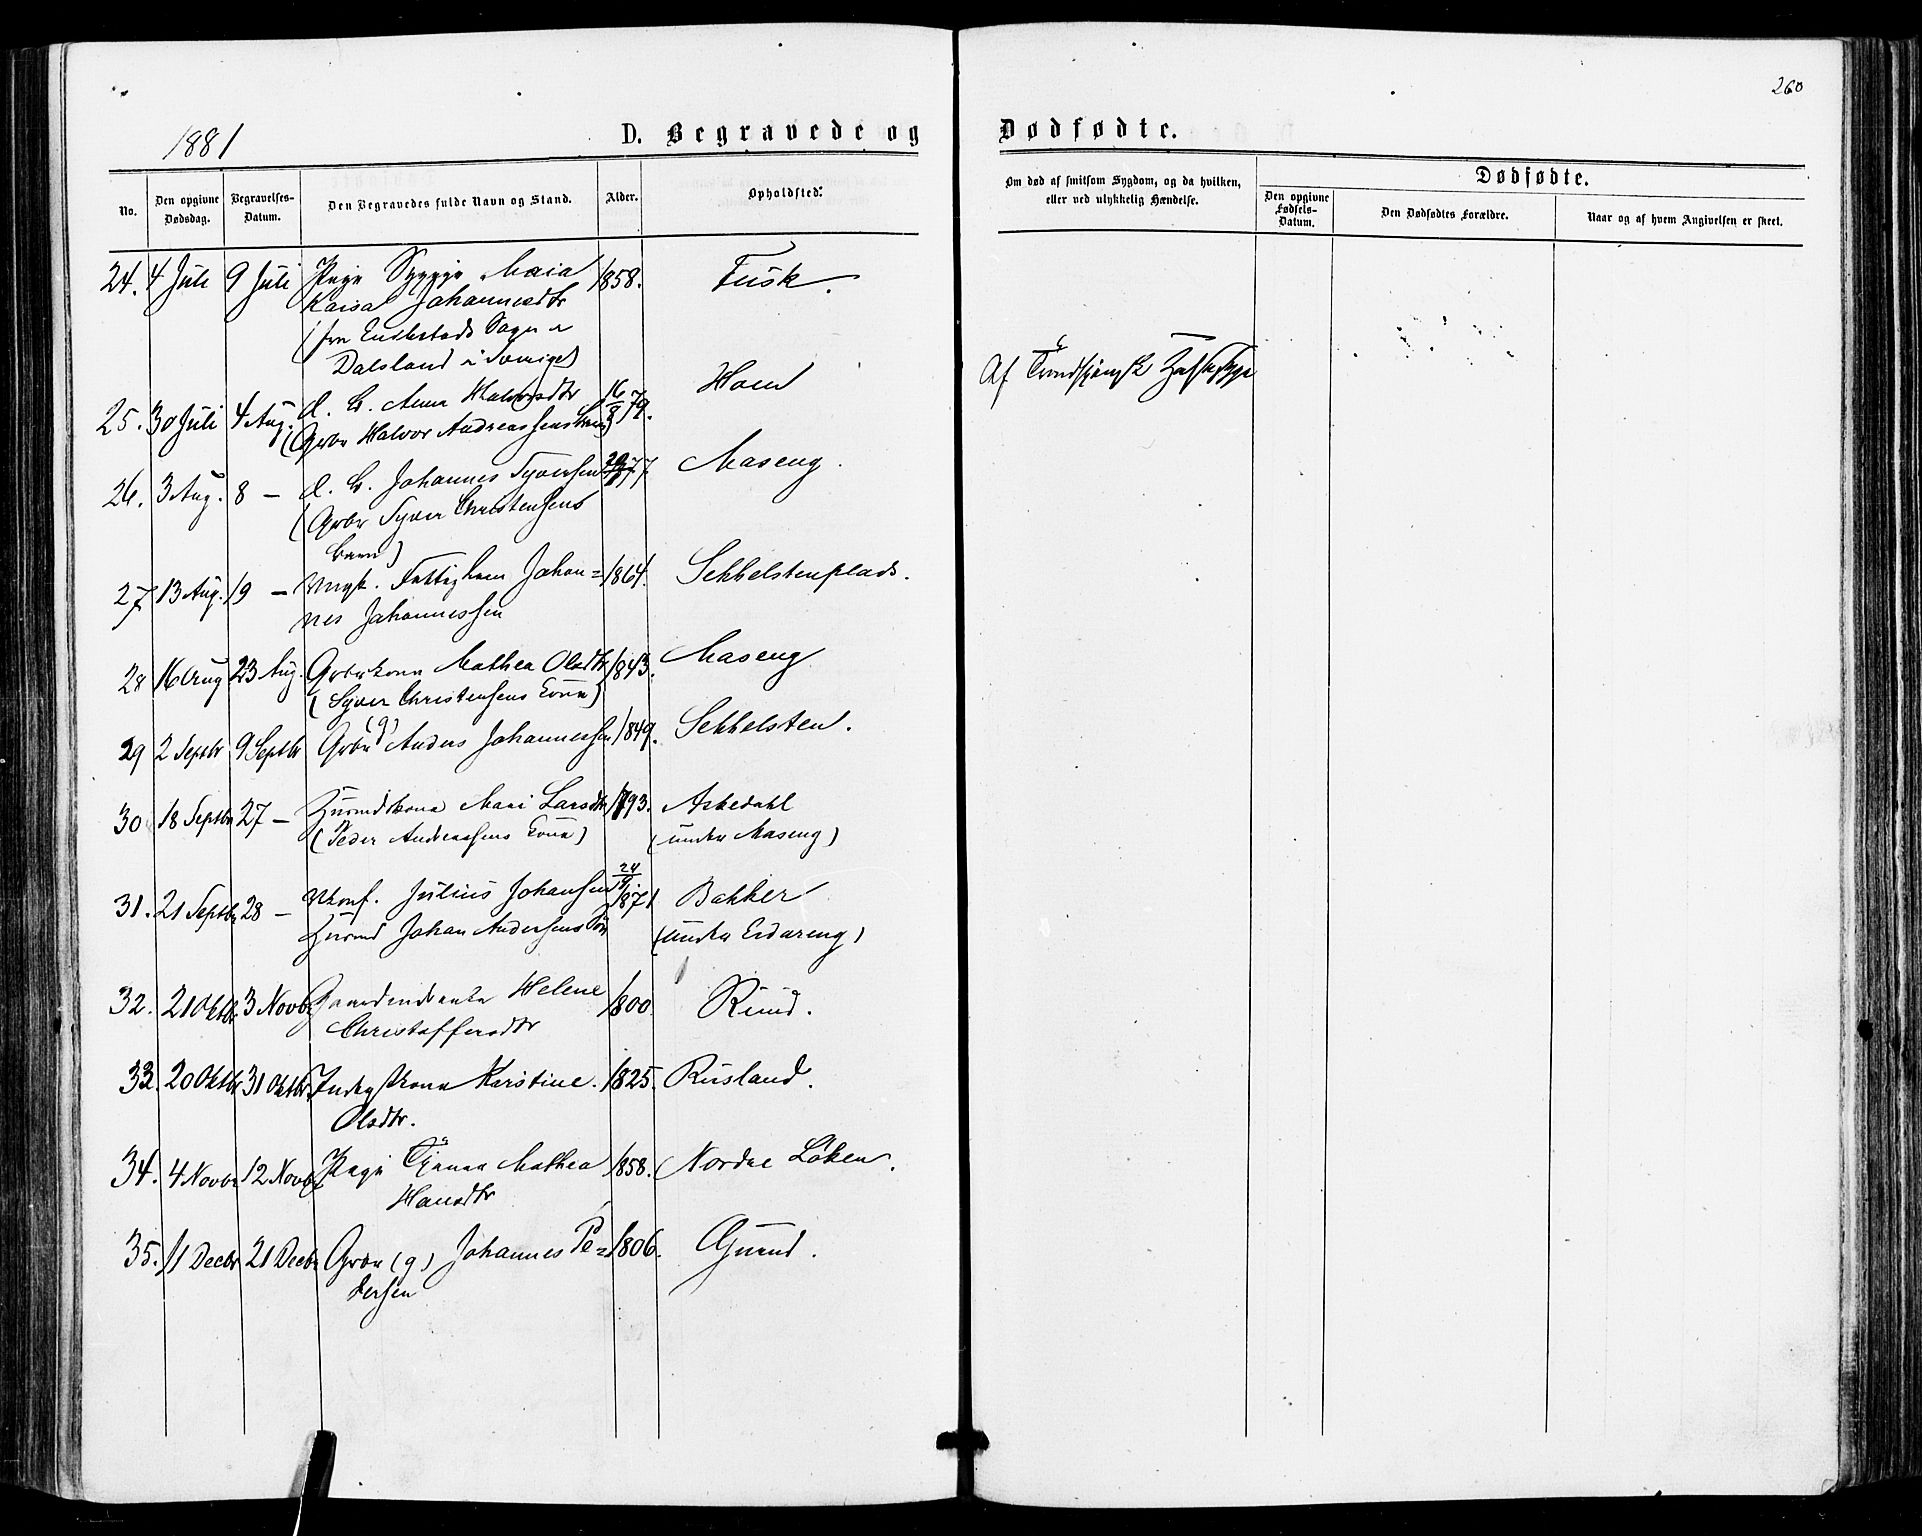 260
1881
D. Begravede og Dødfødte.
No.
Den opgivne Dødsdag.
Begravelses-Datum.
Den Begravedes fulde Navn og Stand.
Alder.
Opholdsted.
Om død af smitsom Sygdom, og da hvilken, eller ved ulykkelig Hændelse.
Dødfødte.
Den opgivne Fødsels-Datum.
Den Dødfødtes Forældre.
Naar og af hvem Angivelsen er skeet.
24. 4 Juli 9 Juli Pige Maia 1858. Fusk.
Kaisa Johannesdtr
(fra Sogn i
Dalsland i Sverige)
25. 30 Juli 4 Aug. d. b. Anna Halvorsdtr 16/8 79. Hoen
(Grbr Halvor Andreassens
26. 3 Aug. 8 — d. b. Johannes Syversen 77 Maseng.
(Grbr Syver Christensens
barn)
27 13 Aug. 19 — Ungk. Fattiglem Johan= 1864. Sekkelstenplads.
nes Johannessen
28 16 Aug 23 Aug. Grbrkone Mathea Olsdtr 1843. Maseng
(Syver Christensens Kone)
29 2 Septbr 9 Septbr Grbr (g) Anders Johannessen 1849. Sekkelsten.
30 18 Septbr 27 — Husmdskone Mari Larsdtr 1793. Askedahl
(Peder Andreassens Kone) (under Maseng)
31. 21 Septbr 28 — Ukonf. Julius Johansen 1871 Bakker
Husmd Johan Andersens Søn (under Eidareng)
32. 21 Oktbr 3 Novbr Gaardmdsenke Helene 1800 Ruud.
Christoffersdtr
33. 20 Oktbr 31 Oktbr Kone Karstine 1825. Rusland.
Olsdtr.
34. 4 Novbr 12 Novbr Pige Mathea 1858. Nordre Løken.
Hansdtr
35. 11 Decbr 21 Decbr Grbr (g) Johannes Pe= 1806.
dersen
Af Trondhjemsk